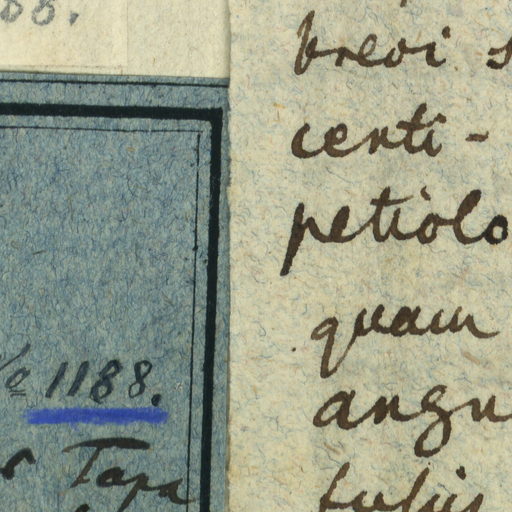 88.
No 1188.
Tapa
brevi s
centi-
petiolo
quam
angu